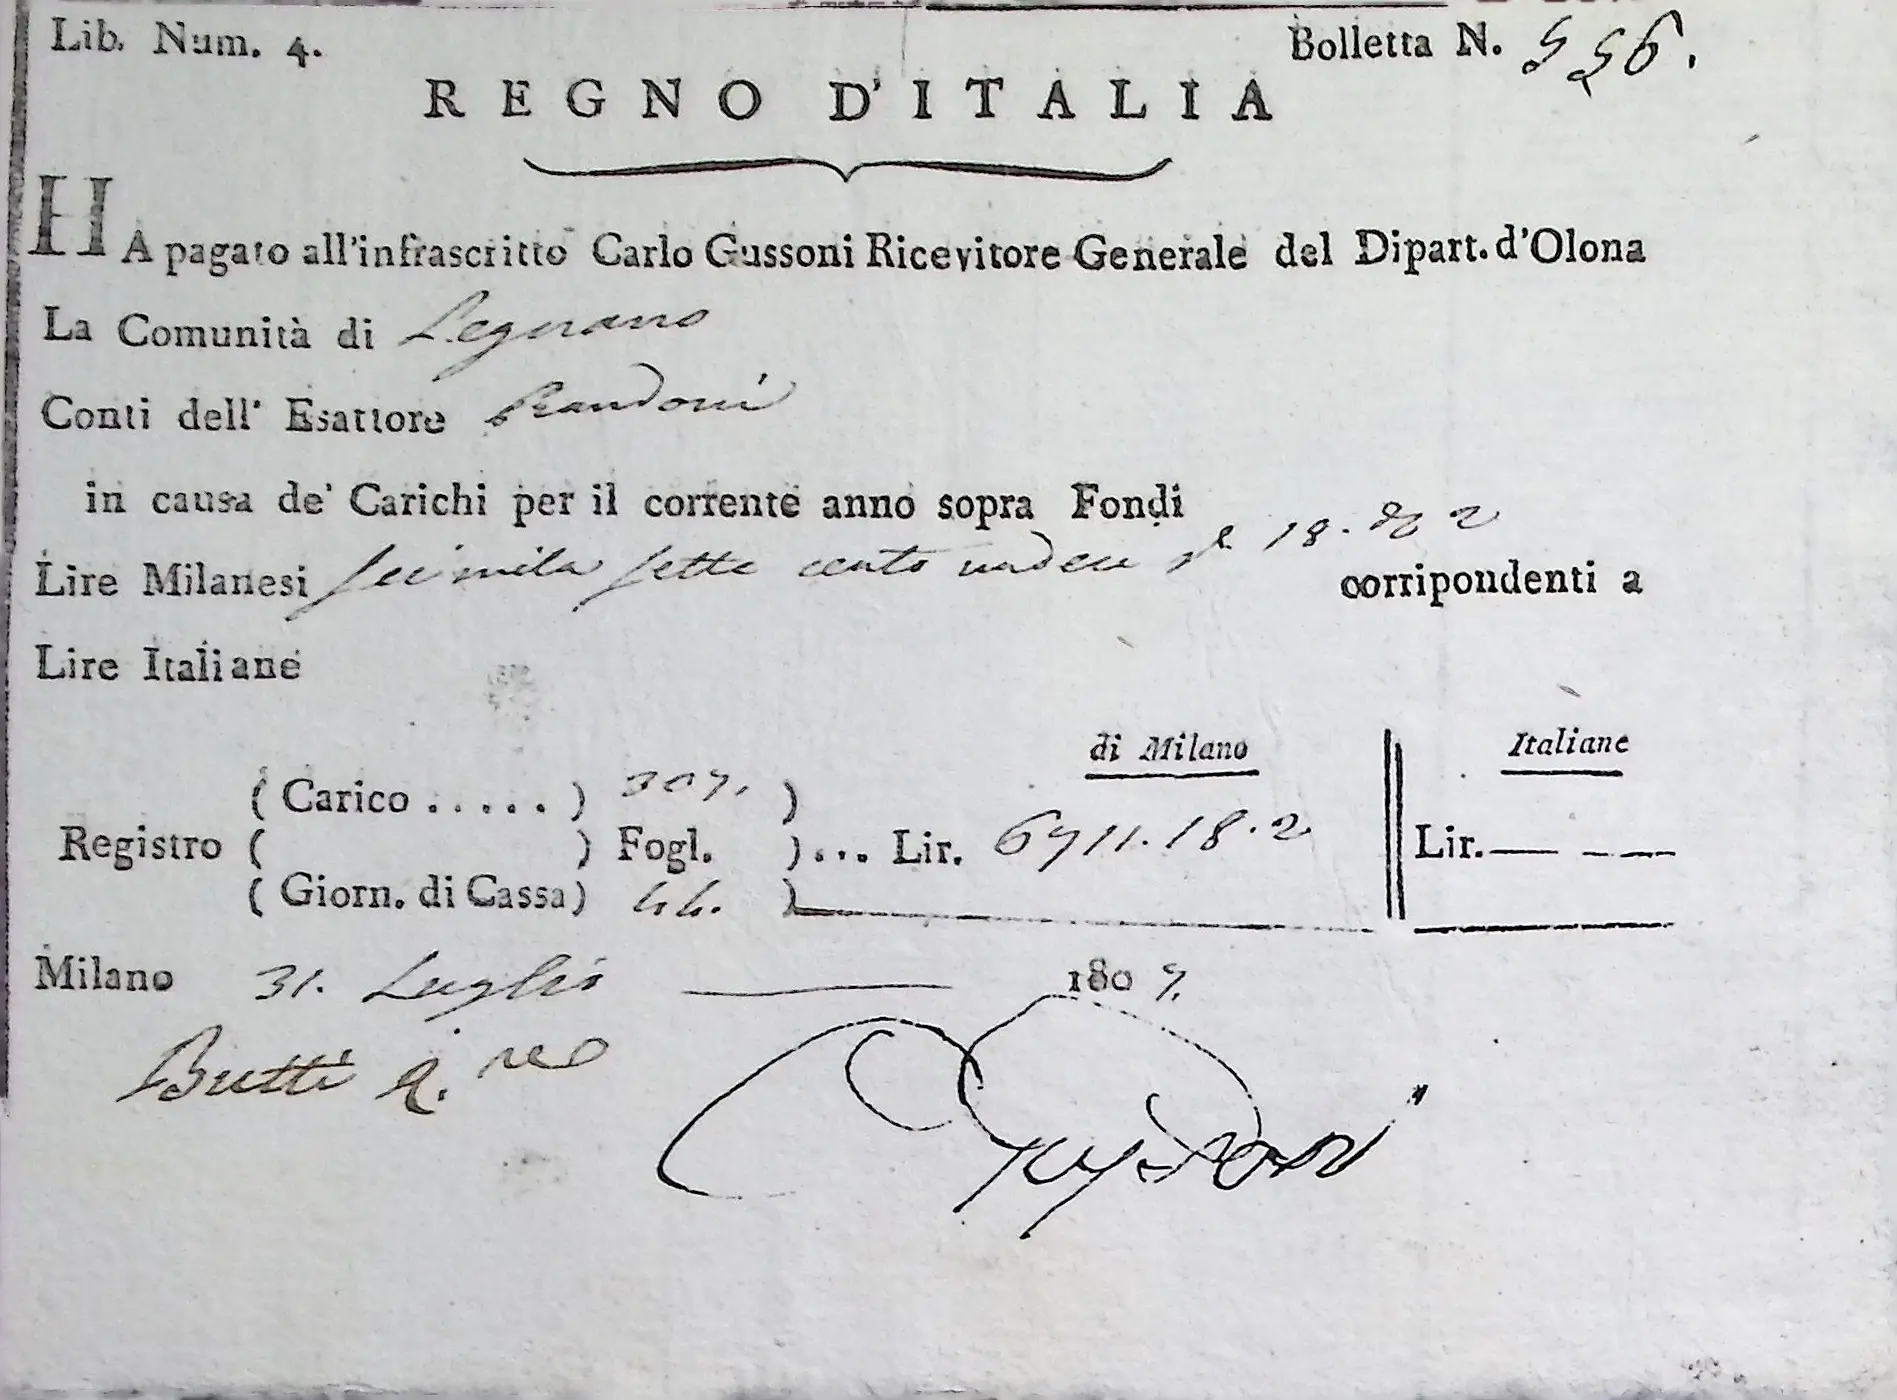 Lib. Num. 4.
Bolletta N. 556.
REGNO D'ITALIA
HA pagato all'infrascritto Carlo Gussoni Ricevitore Generale del Dipart. d'Olona
La Comunità di Legnano
Conti dell' Esattore Prandoni
in causa de' Carichi per il corrente anno sopra Fondi
Lire Milanesi seimila sette cento undeci 18. 2 corripondenti a
Lire Italiane
di Milano Italiane
( Carico ..... ) 307. )
Registro ( ) Fogl. )... Lir. 6711.18.2 Lir.
( Giorn. di Cassa ) 44. )
Milano 31. Luglio 1807.
Butti
Gussoni